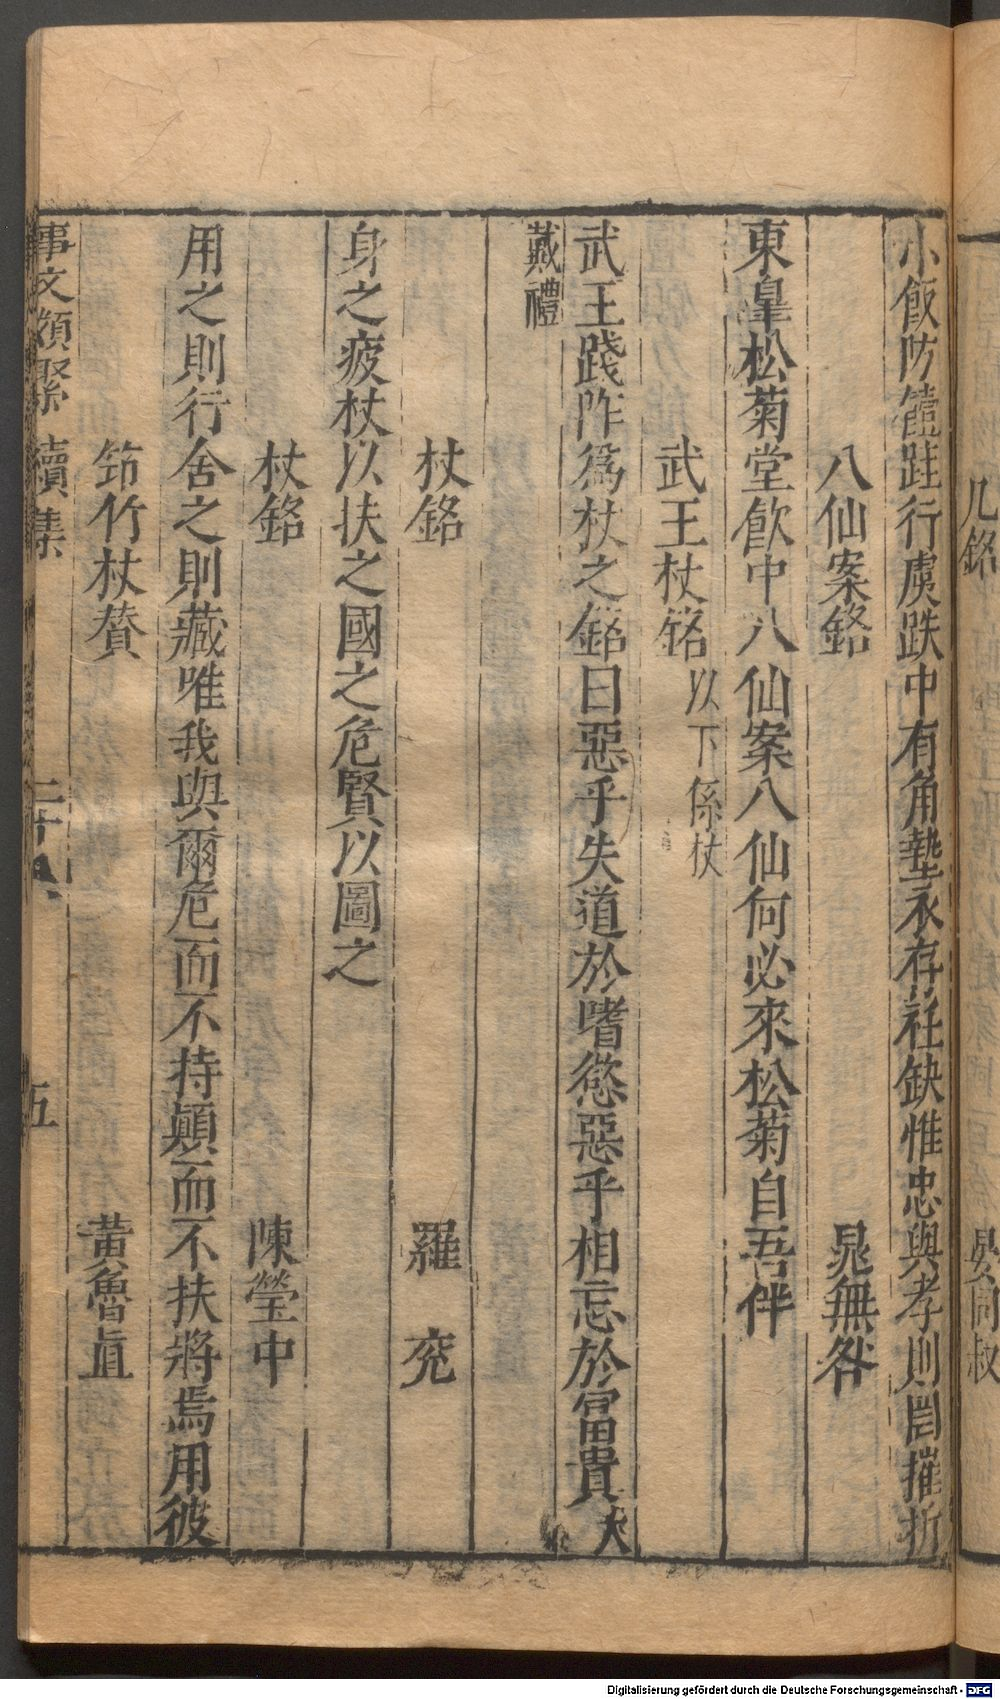 小飯防饐跬行虞跌中有角墊永存社缺惟忠與孝則罔摧折
八仙案銘 晁無咎
東皇松菊堂飲中八仙案八仙何必來松菊自吾伴
武王杖銘 以下係杖
武王踐阼為杖之銘曰惡乎失道於嗜慾惡乎相忘於富貴 大
戴禮
杖銘 羅 兖
身之疲杖以扶之國之危賢以圖之
杖銘 陳瑩中
用之則行舍之則藏唯我與爾危而不持顛而不扶將焉用彼
笻竹杖贊 黃魯直
事文類聚 續集 二十八 五
几銘 晏同叔
Digitalisierung gefördert durch die Deutsche Forschungsgemeinschaft - DFG